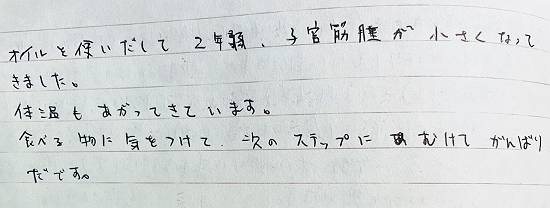 オイルを使いだして 2年弱、子宮筋腫が 小さくなって
きました。
体温も あがってきています。
食べる 物に 気をつけて 次の ステップに むけて がんばり
だです。